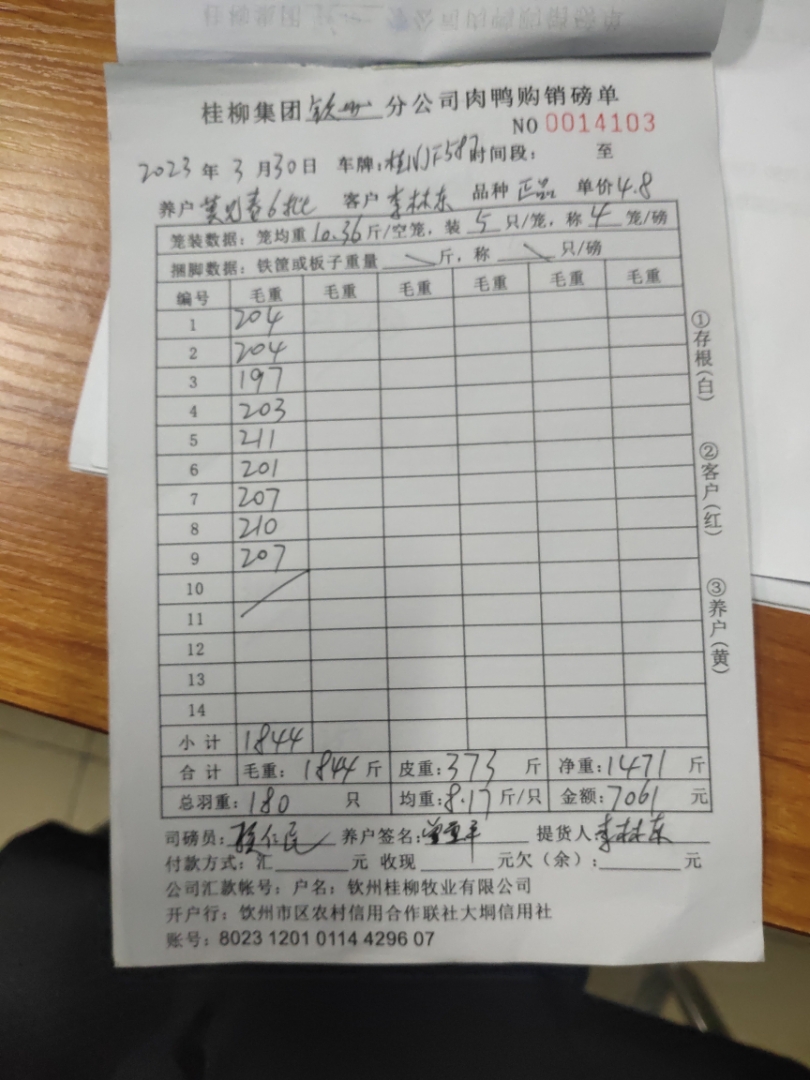 桂柳集团钦州分公司肉鸭购销磅单
NO 0014103
2023年3月30日 车牌: 时间段: 至
养户 6批 客户 李林东 品种 正品 单价4.8
笼装数据:笼均重10.36斤/空笼,装5只/笼,称4笼/磅
捆脚数据:铁筐或板子重量 斤,称 只/磅
编号 毛重 毛重 毛重 毛重 毛重 毛重
1 204
2 204
3 197
4 203
5 211
6 201
7 207
8 210
9 207
10
11
12
13
14
小计 1844
合计 毛重:1844斤 皮重:373斤 净重:1471斤
总羽重:180只 均重:8.17斤/只 金额:7061元
司磅员: 养户签名: 提货人:李林东
付款方式:汇 元 收现 元欠(余): 元
公司汇款帐号:户名:钦州桂柳牧业有限公司
开户行:钦州市区农村信用合作联社大垌信用社
账号:8023 1201 0114 4296 07
①存根(白)
②客户(红)
③养户(黄)